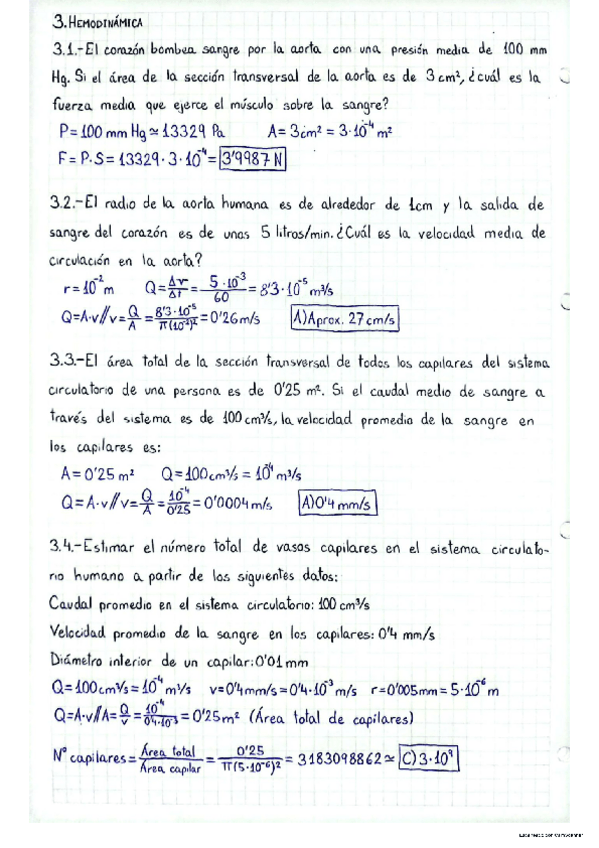 3. HEMODINÁMICA
3.1.-El corazón bombea sangre por la aorta con una presión media de 100 mm
Hg. Si el área de la sección transversal de la aorta es de 3 cm², ¿cuál es la
fuerza media que ejerce el músculo sobre la sangre?
P = 100 mm Hg ≃ 13329 Pa A = 3cm² = 3·10⁻⁴ m²
F = P·S = 13329·3·10⁻⁴ = 3'9987 N
3.2.-El radio de la aorta humana es de alrededor de 1cm y la salida de
sangre del corazón es de unos 5 litros/min. ¿Cuál es la velocidad media de
circulación en la aorta?
r = 10⁻² m Q = Δv/Δt = 5·10⁻³/60 = 8'3·10⁻⁵ m³/s
Q = A·v // v = Q/A = 8'3·10⁻⁵/π(10⁻²)² = 0'26 m/s A) Aprox. 27 cm/s
3.3.-El área total de la sección transversal de todos los capilares del sistema
circulatorio de una persona es de 0'25 m². Si el caudal medio de sangre a
través del sistema es de 100 cm³/s, la velocidad promedio de la sangre en
los capilares es:
A = 0'25 m² Q = 100cm³/s = 10⁻⁴ m³/s
Q = A·v // v = Q/A = 10⁻⁴/0'25 = 0'0004 m/s A) 0'4 mm/s
3.4.-Estimar el número total de vasos capilares en el sistema circulato-
rio humano a partir de los siguientes datos:
Caudal promedio en el sistema circulatorio: 100 cm³/s
Velocidad promedio de la sangre en los capilares: 0'4 mm/s
Diámetro interior de un capilar: 0'01 mm
Q = 100cm³/s = 10⁻⁴ m³/s v = 0'4mm/s = 0'4·10⁻³ m/s r = 0'005mm = 5·10⁻⁶ m
Q = A·v // A = Q/v = 10⁻⁴/0'4·10⁻³ = 0'25m² (Área total de capilares)
Nº capilares = Área total/Área capilar = 0'25/π(5·10⁻⁶)² = 3183098862 ≃ C) 3·10⁹